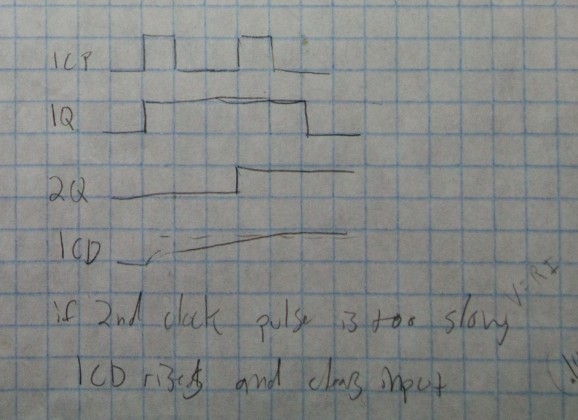 1CP
1Q
2Q
1CD
if 2nd clock pulse is too slow
V=RI
1CD rises and clears input